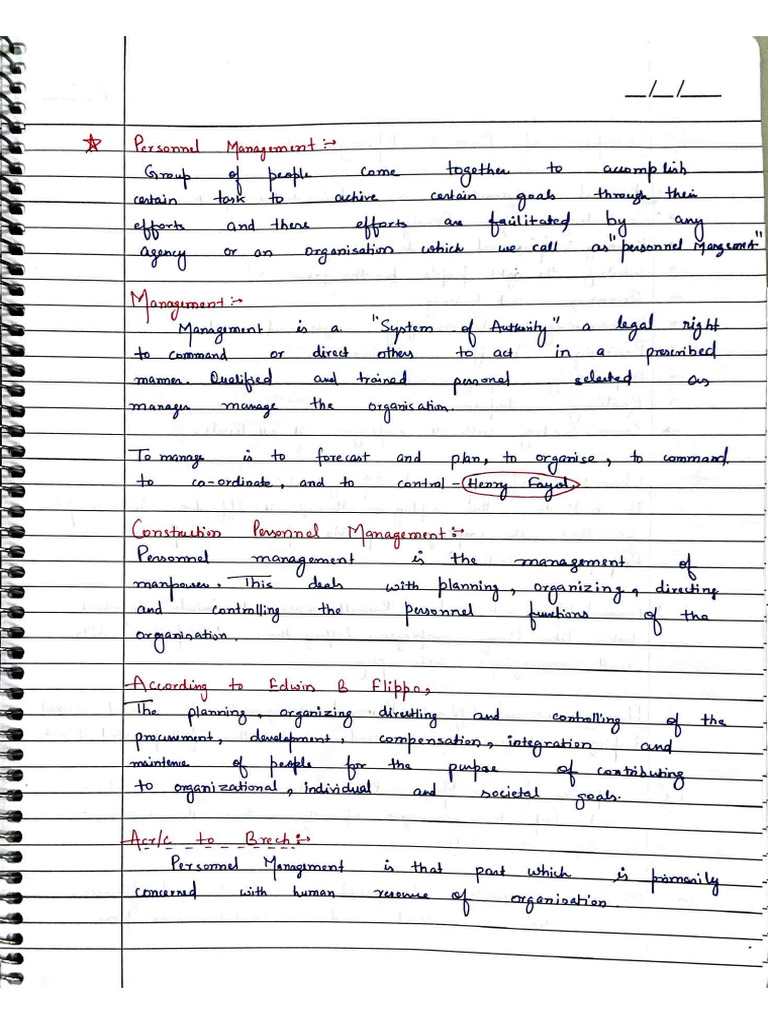 _/_/__
☆ Personnel Management :-
Group of people come together to accomplish
certain task to achive certain goals through their
efforts and there efforts are facilitated by any
agency or an organisation which we call as "personnel Mangement"
Management :-
Management is a "System of Authority" a legal right
to command or direct others to act in a prescribed
manner. Qualified and trained personal selected as
manager manage the organisation.
To manage is to forecast and plan, to organise, to command.
to co-ordinate, and to control - Henry Fayol.
Construction Personnel Management :-
Personnel management is the management of
manpower. This deals with planning, organizing, directing
and controlling the personnel functions of the
organisation.
According to Edwin B Flippo,
The planning, organizing directing and controlling of the
procurment, development, compensation, integration and
maintence of people for the purpose of contributing
to organizational, individual and societal goals.
Acr/c to Brech :-
Personnel Management is that part which is primarily
concerned with human resource of organisation.